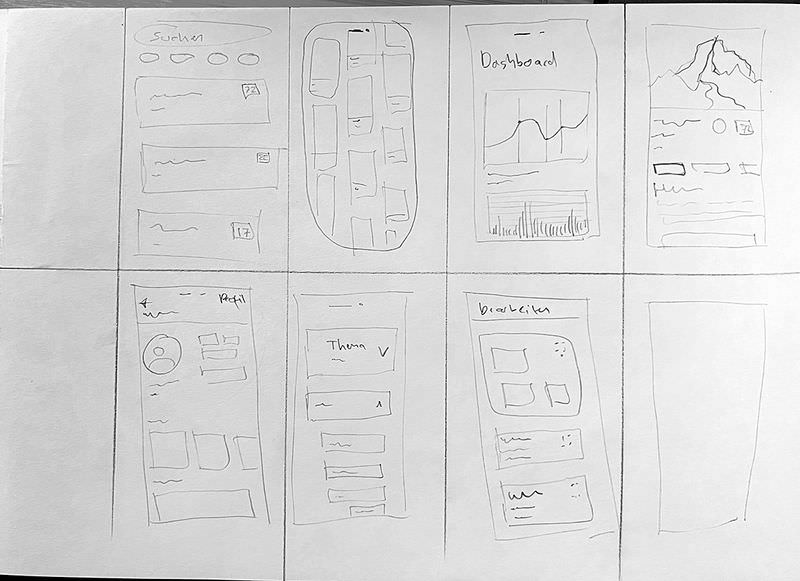 Suchen
72
17
Dashboard
72
Profil
Thema
bearbeiten